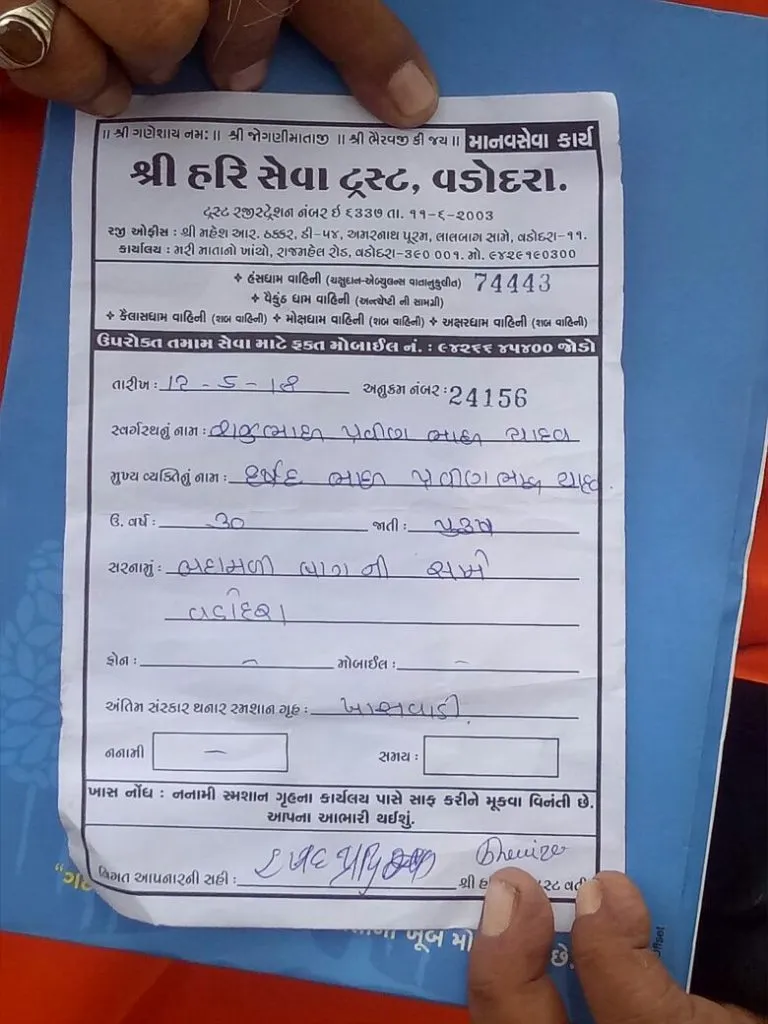 ॥ શ્રી ગણેશાય નમઃ॥ શ્રી જોગણીમાતાજી ॥ શ્રી ભૈરવજી કી જય॥ માનવસેવા કાર્ય
શ્રી હરિ સેવા ટ્રસ્ટ, વડોદરા.
ટ્રસ્ટ રજીસ્ટ્રેશન નંબર ઇ ૬૩૩૭ તા. ૧૧-૬-૨૦૦૩
રજી ઓફીસ : શ્રી મહેશ આર. ઠક્કર, ડી-૫૪, અમરનાથ પૂરમ, લાલબાગ સામે, વડોદરા-૧૧.
કાર્યાલય : મરી માતાનો ખાંચો, રાજમહેલ રોડ, વડોદરા-૩૯૦ ૦૦૧. મો. ૯૪૨૯૧૯૦૩૦૦
❖ હંસધામ વાહિની (ચક્ષુદાન-એમ્બ્યુલન્સ વાતાનુકુલીત) 74443
❖ વૈકુંઠ ધામ વાહિની (અન્ત્યેષ્ટી ની સામગ્રી)
❖ કૈલાસધામ વાહિની (શબ વાહિની) ❖ મોક્ષધામ વાહિની (શબ વાહિની) ❖ અક્ષરધામ વાહિની (શબ વાહિની)
ઉપરોક્ત તમામ સેવા માટે ફક્ત મોબાઈલ નં. : ૯૪૨૬૬ ૪૫૪૦૦ જોડો
તારીખ : ૧૨-૫-૧૪ અનુક્રમ નંબર : 24156
સ્વર્ગસ્થનું નામ : રાજુભાઇ પ્રવીણ ભાઇ યાદવ
મુખ્ય વ્યક્તિનું નામ : હર્ષદ ભાઇ પ્રવીણ ભાઇ યાદવ
ઉ. વર્ષ : ૩૦ જાતી : પુરુષ
સરનામું : બદામળી બાગ ની સામે
વડોદરા
ફોન : — મોબાઈલ : —
અંતિમ સંસ્કાર થનાર સ્મશાન ગૃહ : ખાસવાડી
નનામી — સમય :
ખાસ નોંધ : નનામી સ્મશાન ગૃહના કાર્યાલય પાસે સાફ કરીને મૂકવા વિનંતી છે.
આપના આભારી થઈશું.
વિગત આપનારની સહી : શ્રી
ખૂબ
છે.
Offset